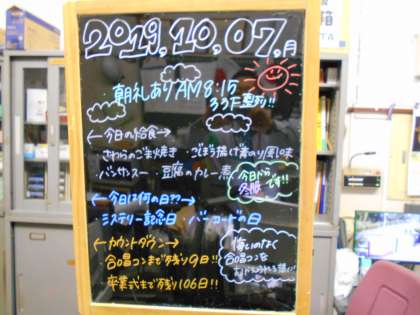 2019,10,07,月
朝礼ありAM8:15
ろう下整列!!
<今日の給食→
さわらのごま焼き ・ごぼう揚げ煮のり風味
・バンサンスー ・豆腐のカレー煮
今日から
冬服
です!!
<今日は何の日??→
・ミステリー記念日 ・バーコードの日
<カウントダウン→
合唱コンまで残り9日!!
卒業式まで残り106日!!
悔いのなく
合唱コンを